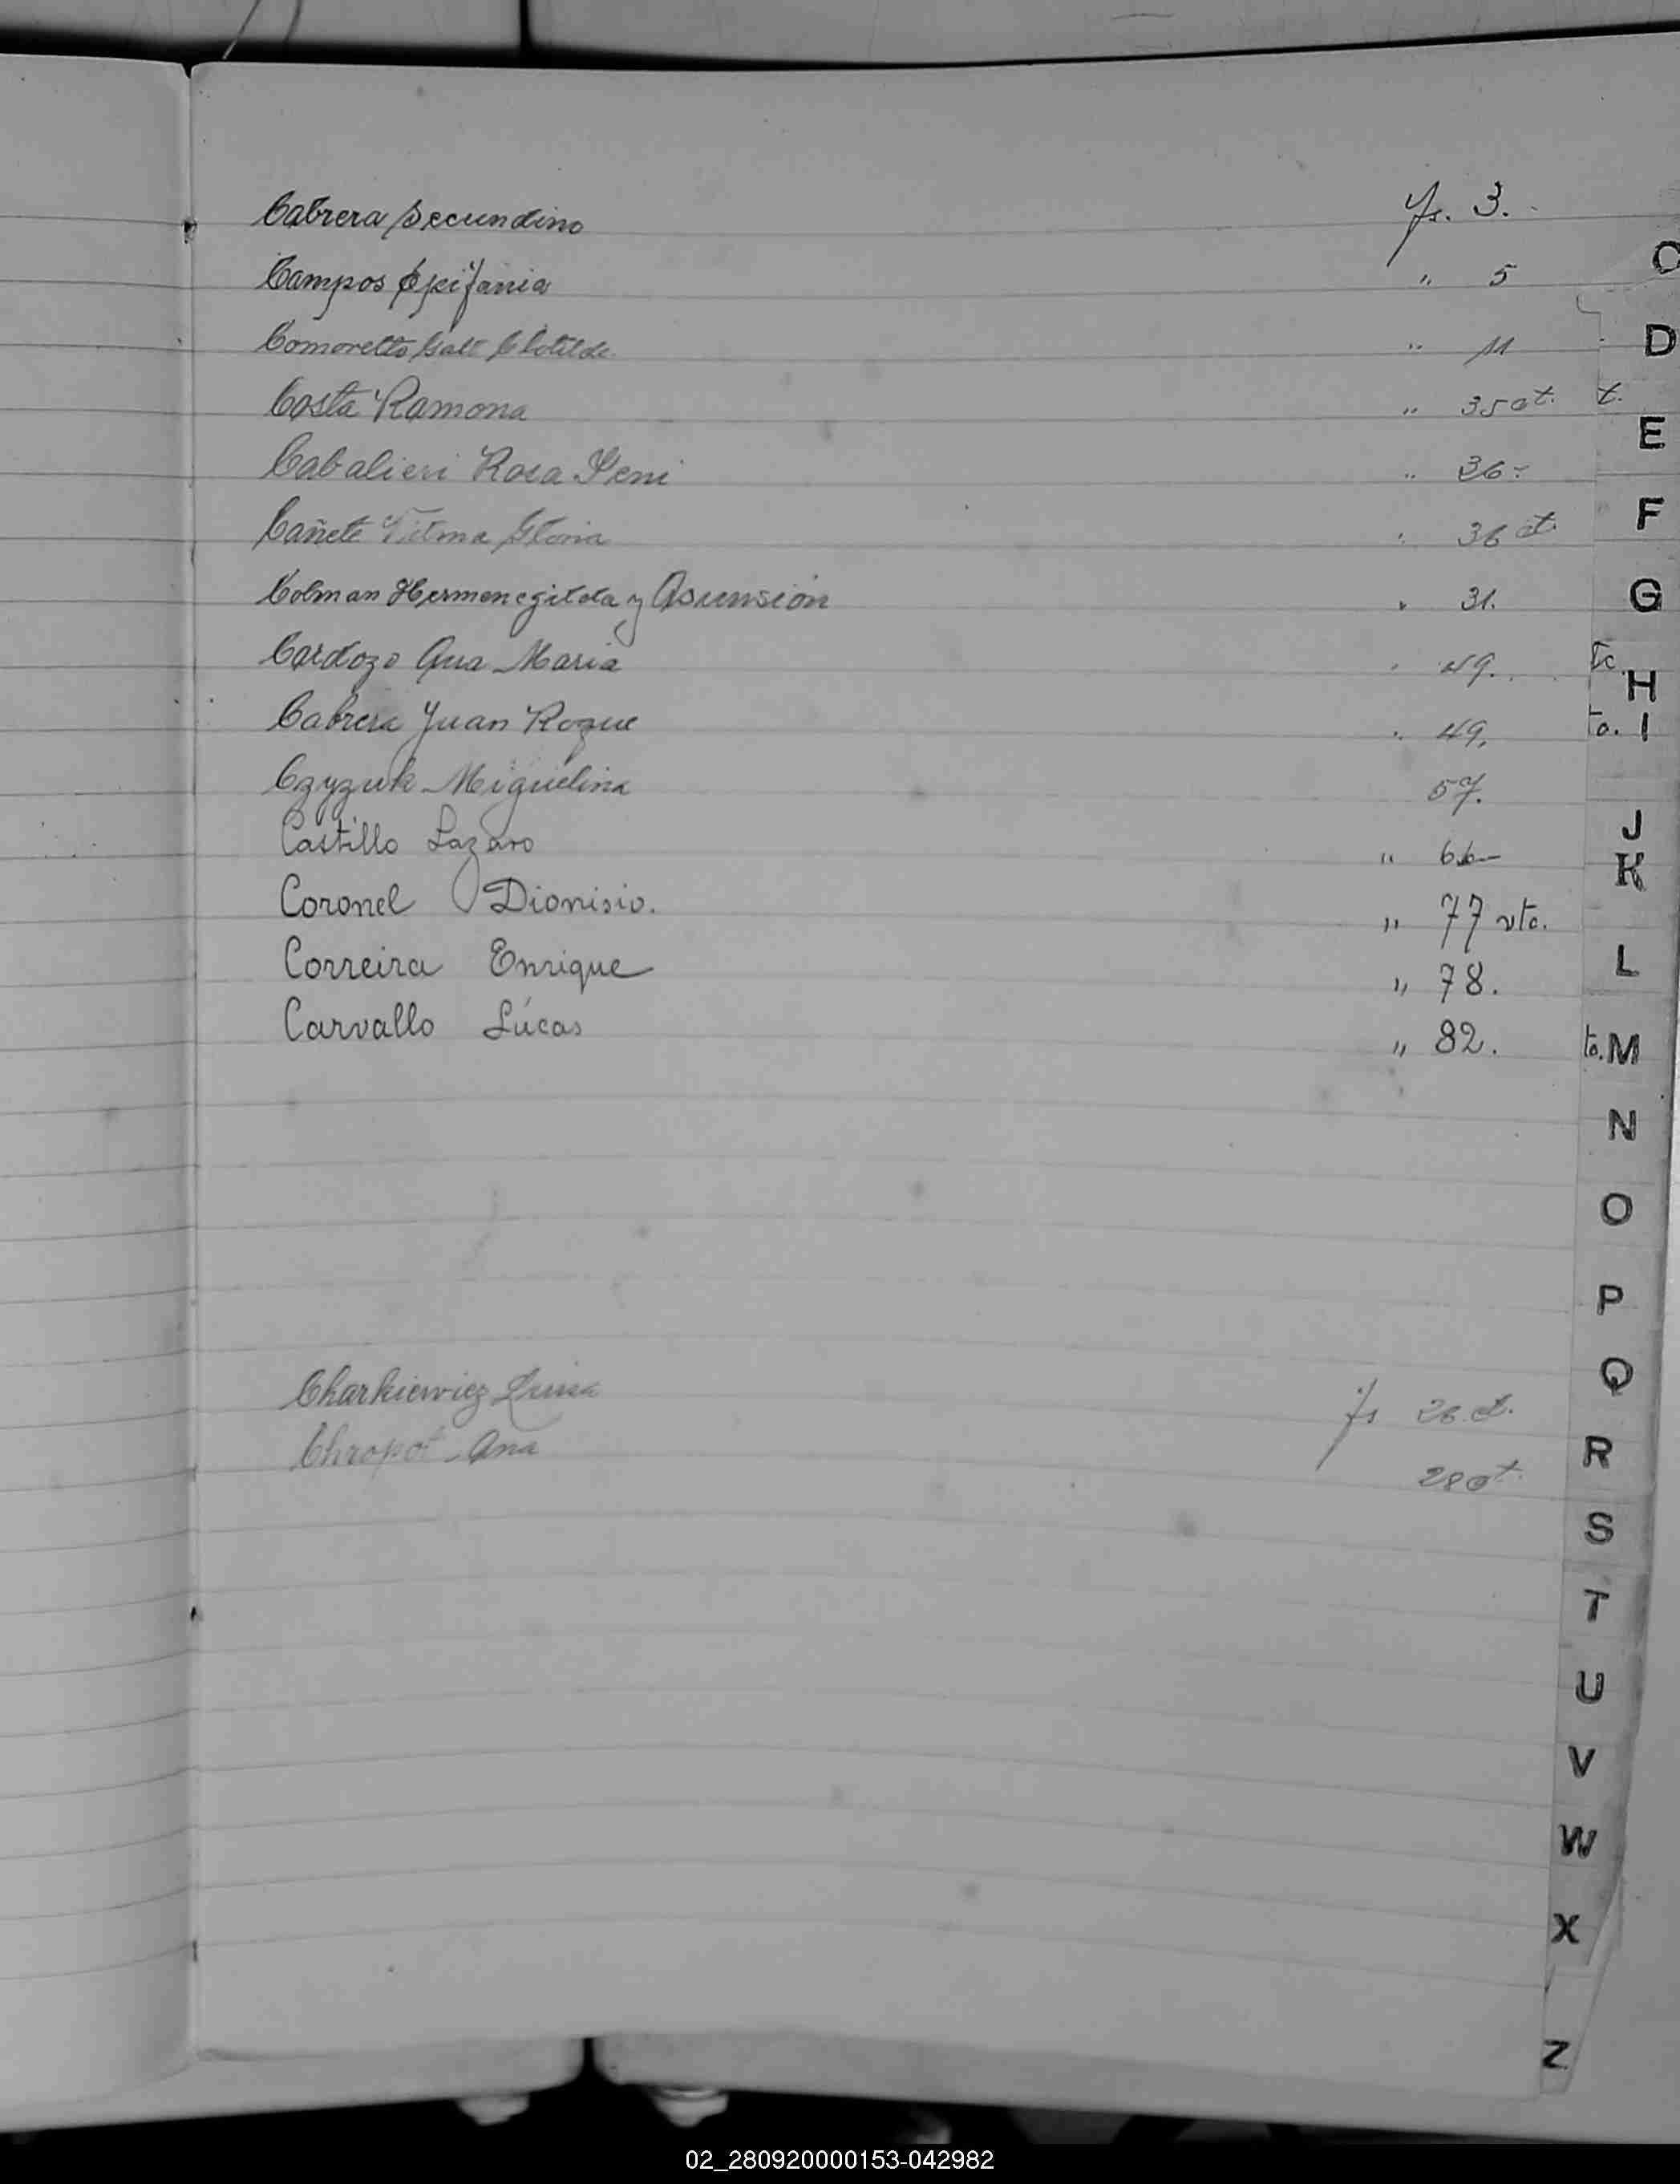 Cabrera Secundino fs. 3.
Campos Epifania " 5
Comoretto Galt Clotilde " 11
Costa Ramona " 35 vt. t.
Cabalieri Rosa Yeni " 36
Cañete Vilma Gloria " 36 vt.
Colman Hermenegilda y Asunsión " 31.
Cardozo Ana Maria " 49. to.
Cabrera Juan Roque " 49. to.
Czyzuk Miguelina 57.
Castillo Lazaro " 66
Coronel Dionisio. " 77 vto.
Correira Enrique " 78.
Carvallo Lúcas " 82. to.
Charkiewicz Luisa fs 26 vt.
Chropot Ana 28 vt.
C
D
E
F
G
H
I
J
K
L
M
N
O
P
Q
R
S
T
U
V
W
X
Z
02_280920000153-042982